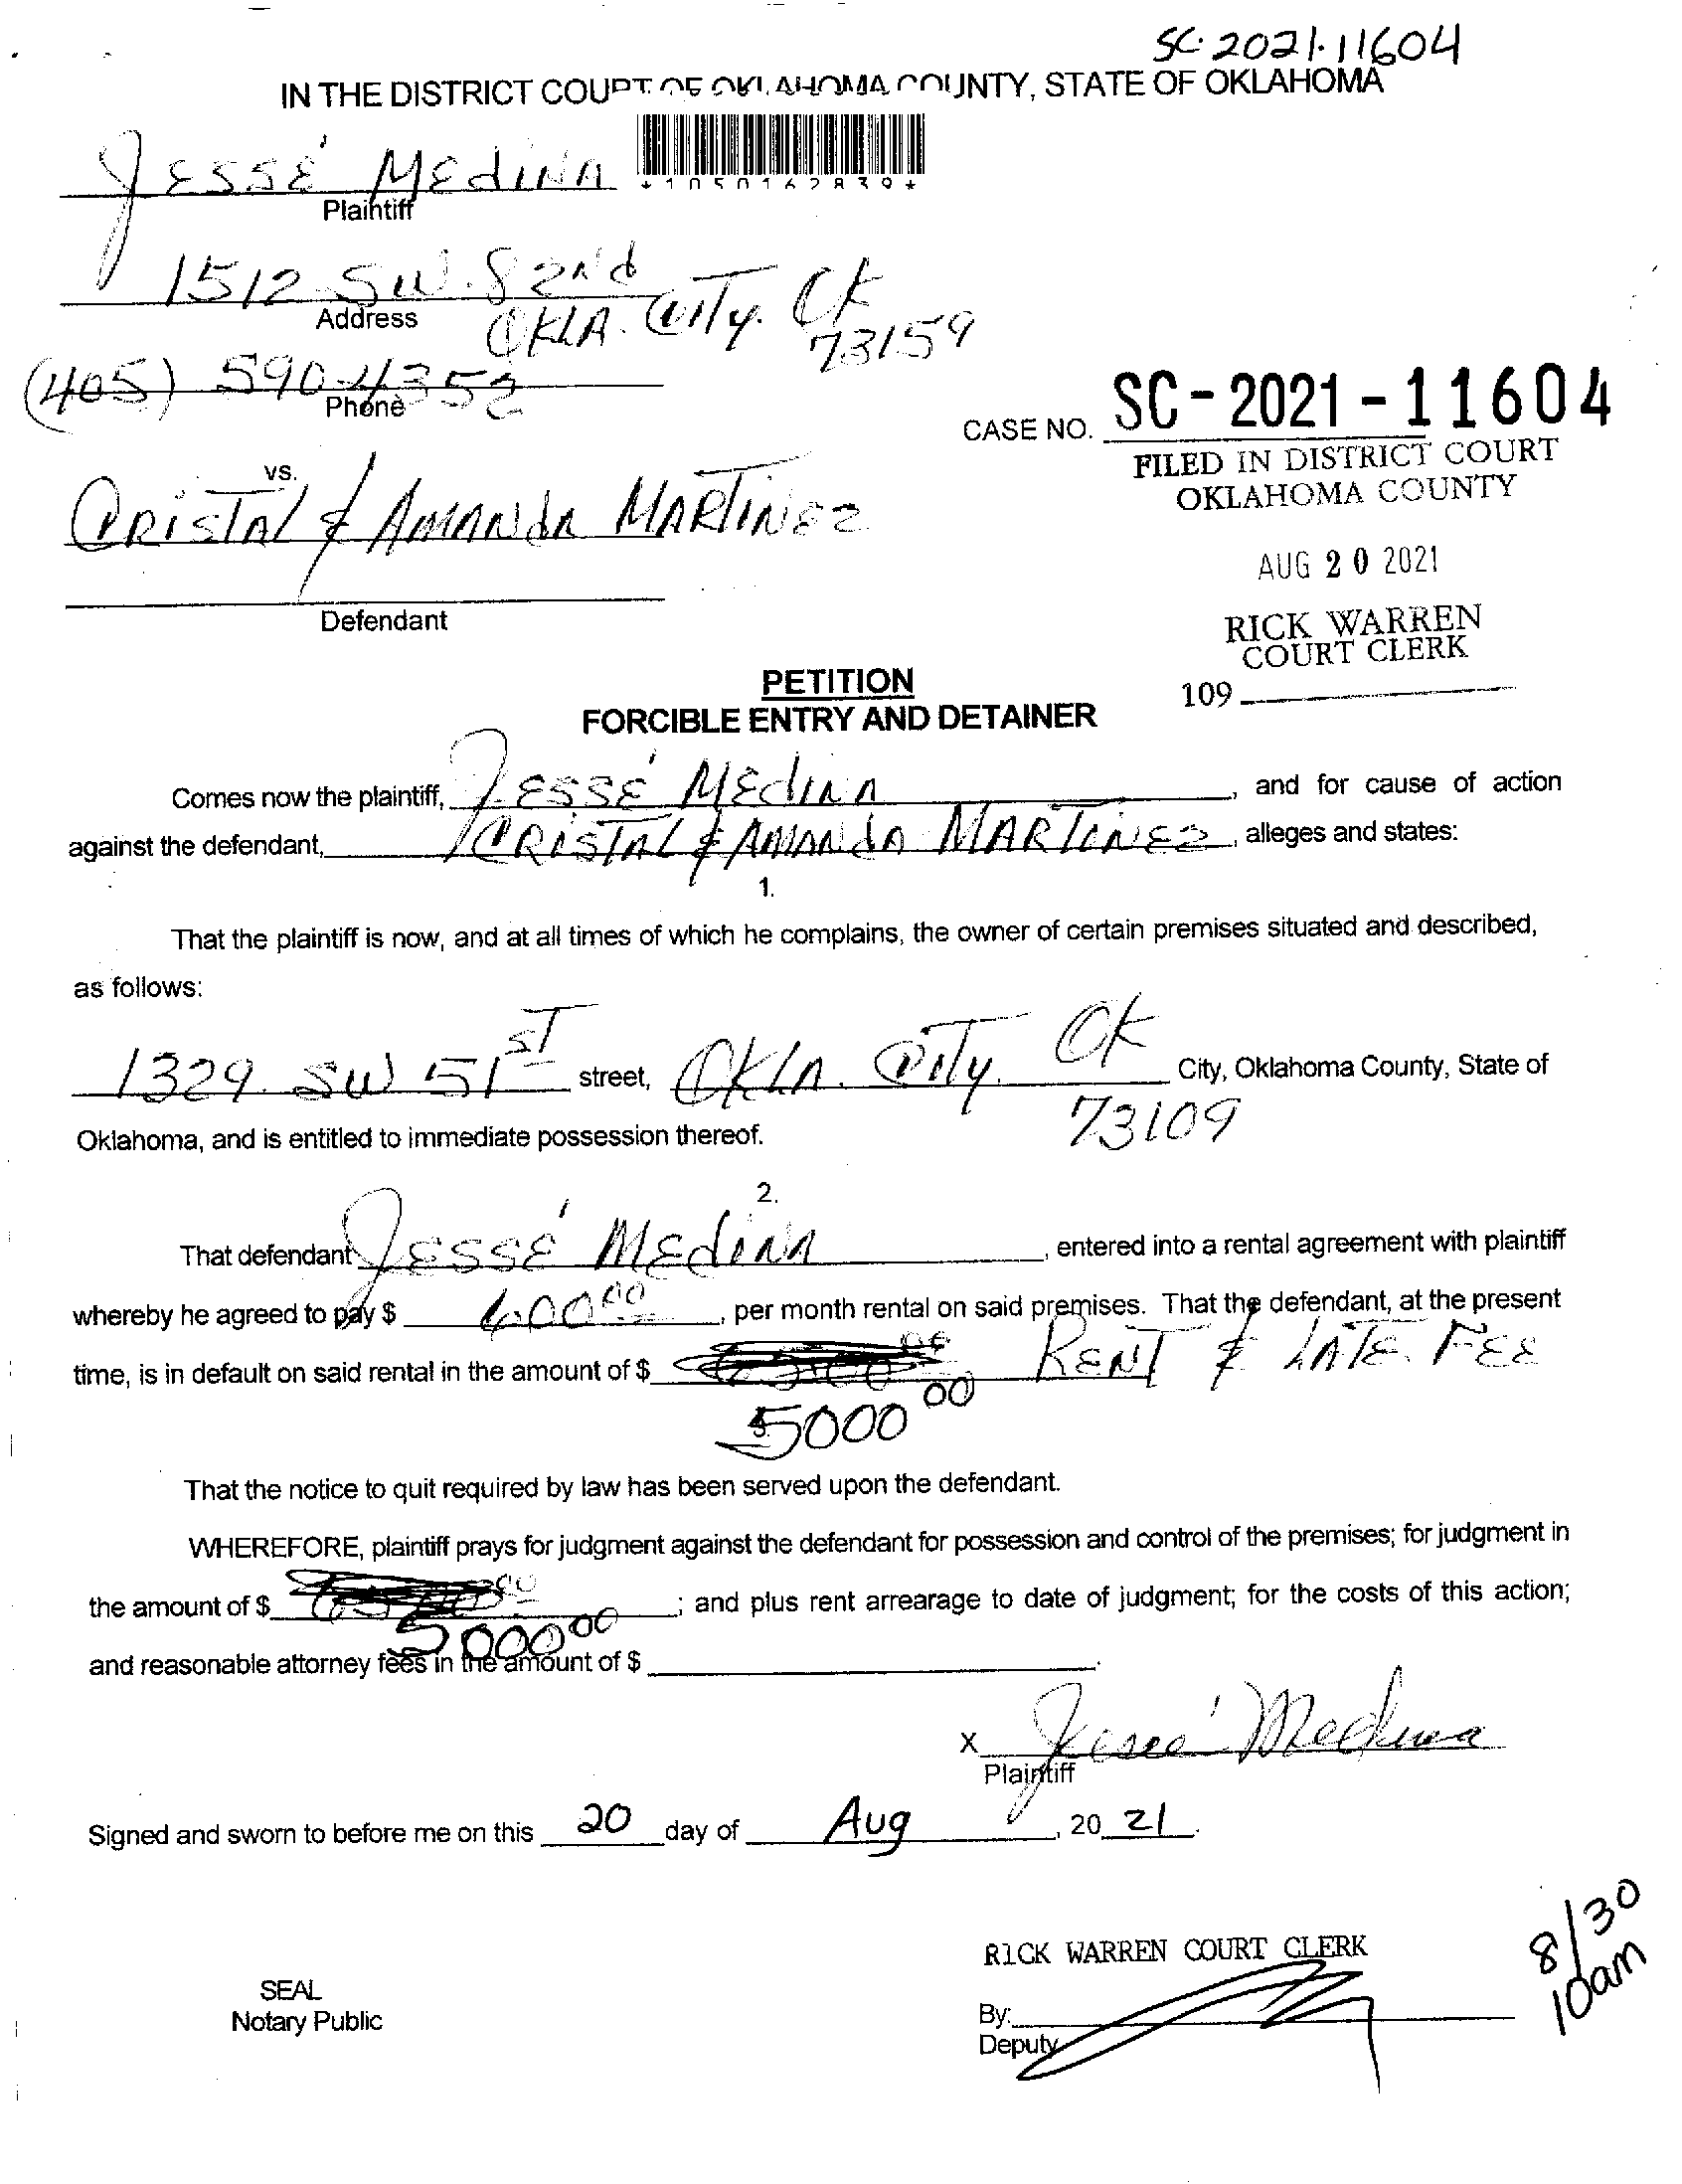 SC-2021-11604
IN THE DISTRICT COURT OF OKLAHOMA COUNTY, STATE OF OKLAHOMA
JESSÉ MEdiNA
*1050162839*
Plaintiff
1512 SW. 82Nd
Address
OKLA. CiTy. OK
73159
(405) 590-4352
Phone
CASE NO. SC-2021-11604
FILED IN DISTRICT COURT
OKLAHOMA COUNTY
vs.
CRISTAL & AMANdA MARTINEZ
AUG 20 2021
Defendant
RICK WARREN
COURT CLERK
109
PETITION
FORCIBLE ENTRY AND DETAINER
Comes now the plaintiff, JESSÉ MEdiNA, and for cause of action
against the defendant, CRISTAL & AMANdA MARTINEZ, alleges and states:
1.
That the plaintiff is now, and at all times of which he complains, the owner of certain premises situated and described,
as follows:
1329 SW 51ST street, OKLA. CiTy. OK City, Oklahoma County, State of
73109
Oklahoma, and is entitled to immediate possession thereof.
2.
That defendant JESSÉ MEdiNA, entered into a rental agreement with plaintiff
whereby he agreed to pay $ 600 00, per month rental on said premises. That the defendant, at the present
time, is in default on said rental in the amount of $ RENT & LATE FEE
5000 00
3.
That the notice to quit required by law has been served upon the defendant.
WHEREFORE, plaintiff prays for judgment against the defendant for possession and control of the premises; for judgment in
the amount of $ ; and plus rent arrearage to date of judgment; for the costs of this action;
5000 00
and reasonable attorney fees in the amount of $
X Jessé Medina
Plaintiff
Signed and sworn to before me on this 20 day of Aug, 20 21.
8/30
10am
RICK WARREN COURT CLERK
SEAL
Notary Public
By:
Deputy